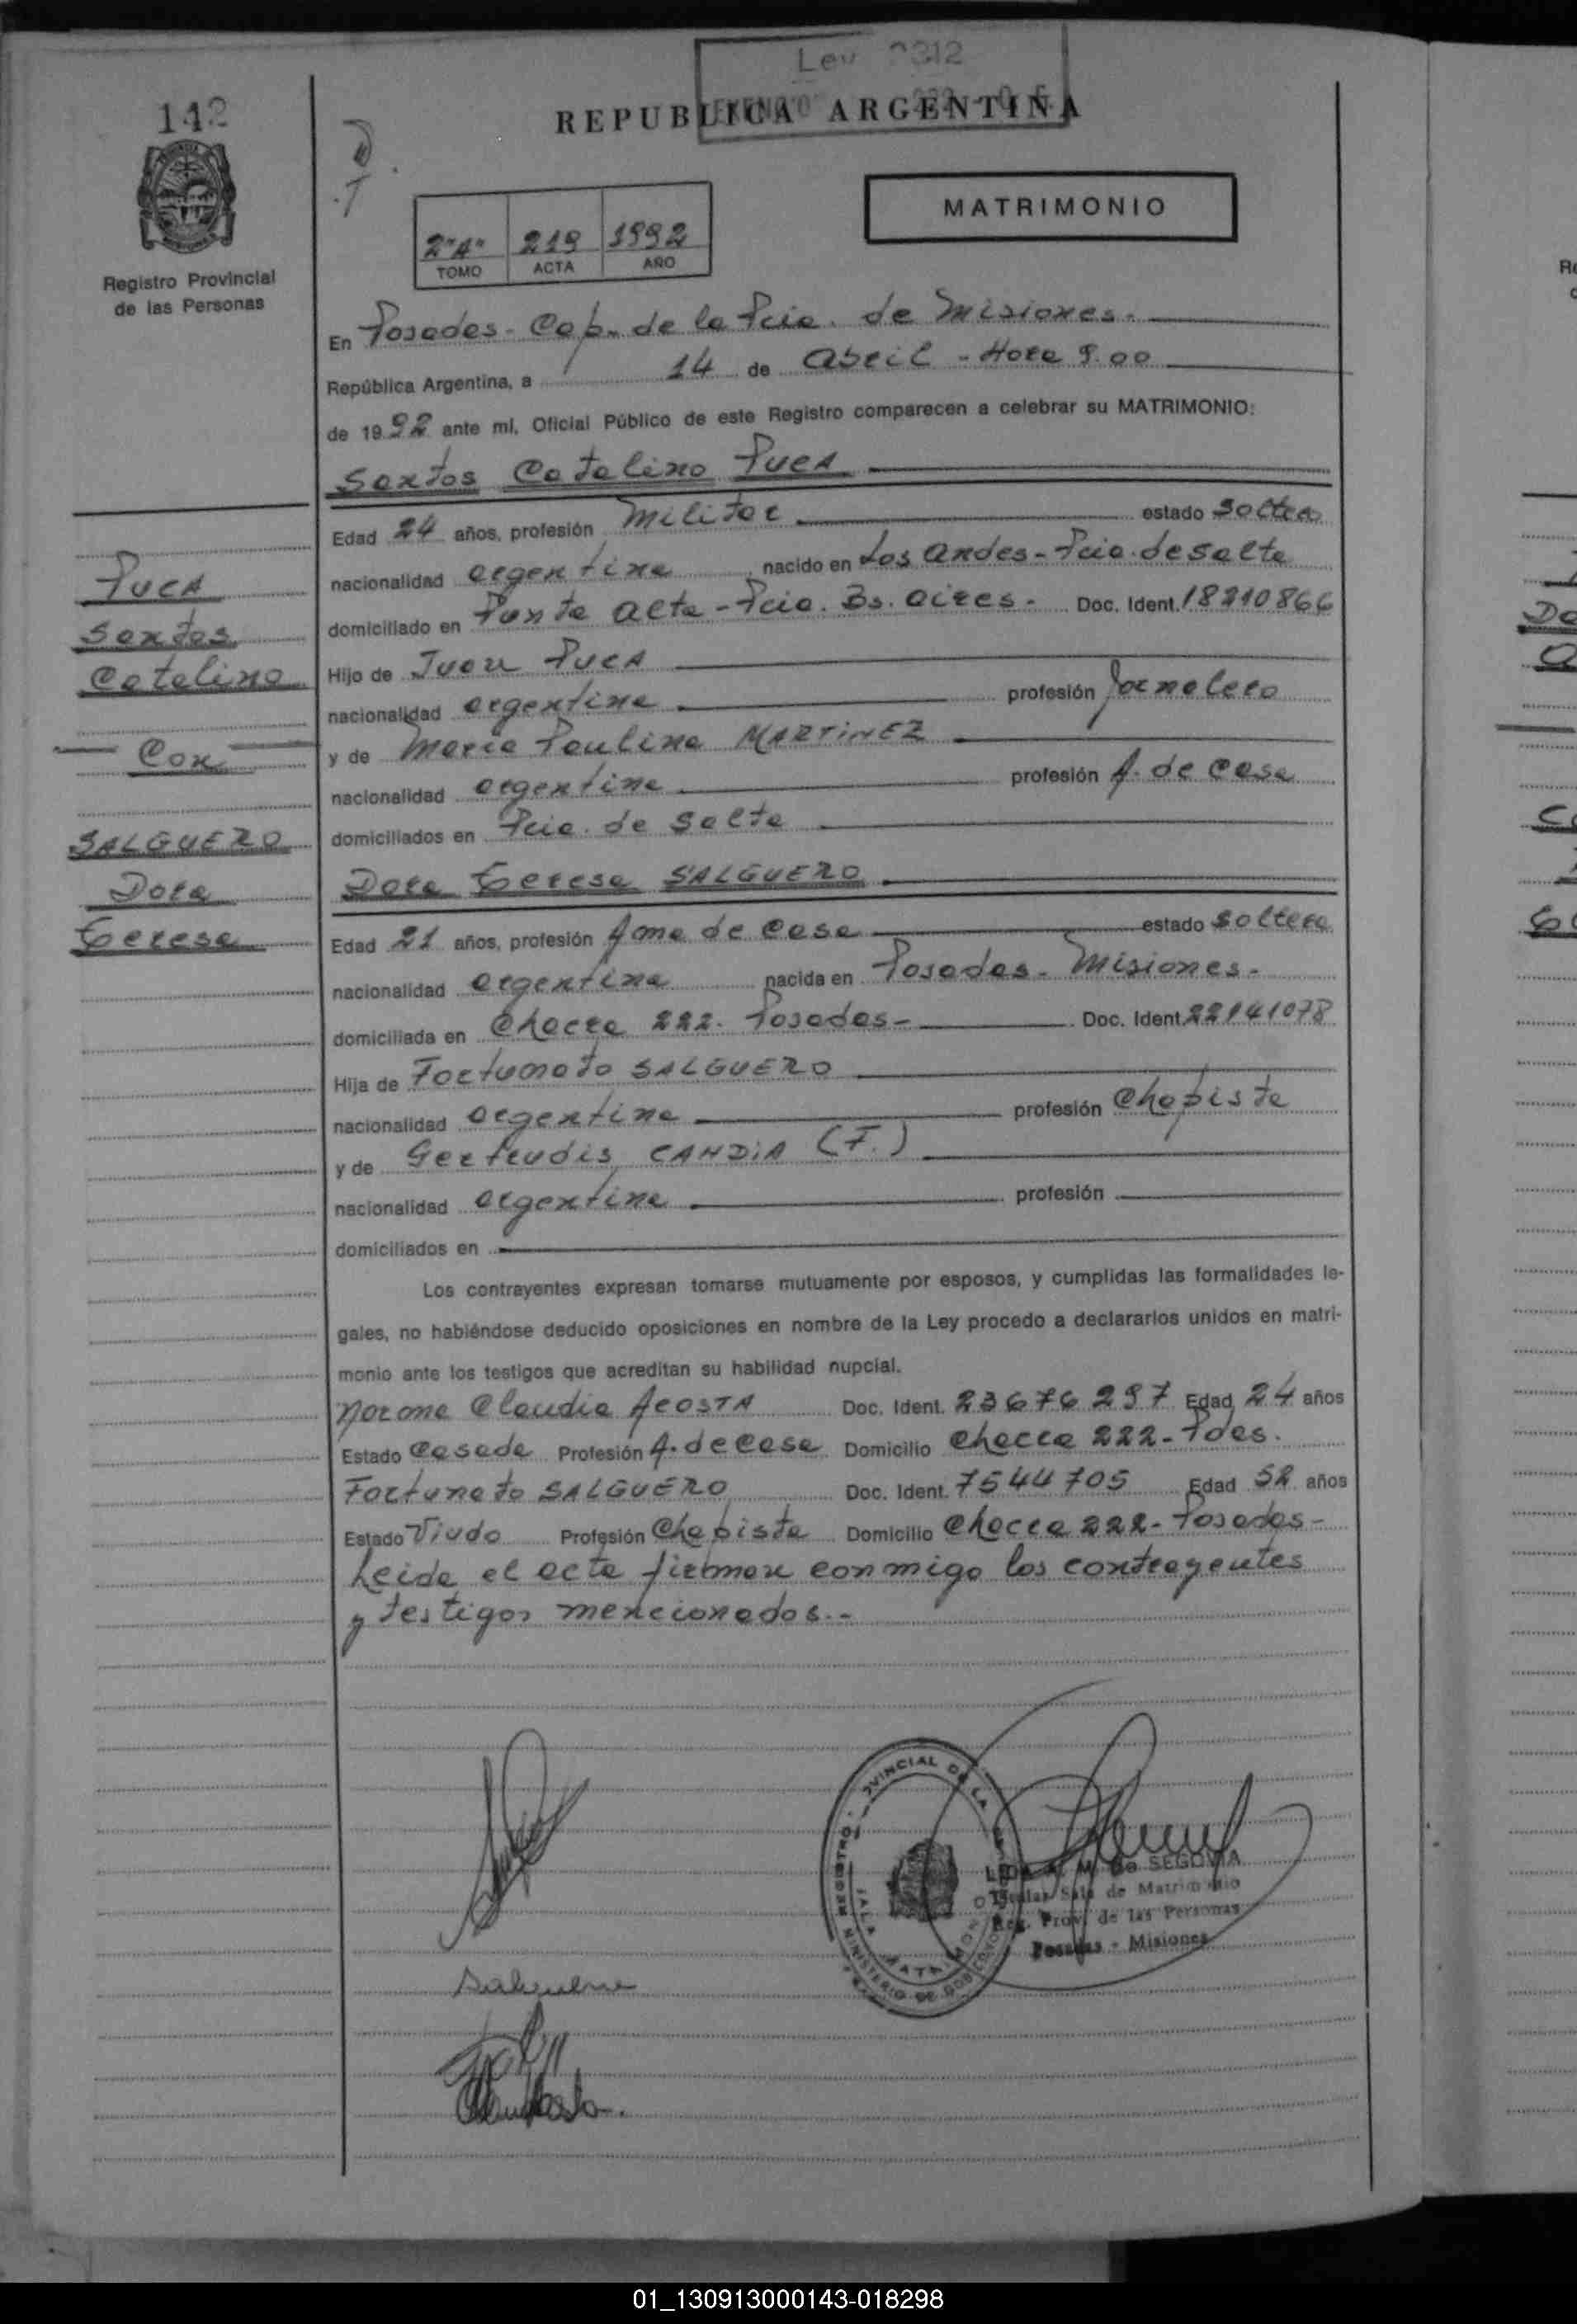 Ley 2312
142
REPUBLICA ARGENTINA
MATRIMONIO
2"A" 219 1992
TOMO ACTA AÑO
Registro Provincial
de las Personas
En Posadas - Cap. de la Pcia. de Misiones.
República Argentina, a 14 de Abril - Hora 9.00
de 1992 ante mí, Oficial Público de este Registro comparecen a celebrar su MATRIMONIO:
Santos Catalino PUCA
Edad 24 años, profesión Militar estado Soltero
nacionalidad argentina nacido en Los Andes - Pcia. de Salta
domiciliado en Punta Alta - Pcia. Bs. Aires - Doc. Ident. 18210866
Hijo de Juan PUCA
nacionalidad argentina profesión Jornalero
y de María Paulina MARTINEZ
nacionalidad argentina profesión A. de Casa
domiciliados en Pcia. de Salta
Dora Teresa SALGUERO
Edad 21 años, profesión Ama de Casa estado Soltera
nacionalidad argentina nacida en Posadas - Misiones.
domiciliada en Chacra 222. Posadas - Doc. Ident. 22141078
Hija de Fortunato SALGUERO
nacionalidad argentina profesión Chapista
y de Gertrudis CANDIA (F.)
nacionalidad argentina profesión
domiciliados en
Los contrayentes expresan tomarse mutuamente por esposos, y cumplidas las formalidades le-
gales, no habiéndose deducido oposiciones en nombre de la Ley procedo a declararlos unidos en matri-
monio ante los testigos que acreditan su habilidad nupcial.
Norma Claudia ACOSTA Doc. Ident. 23676297 Edad 24 años
Estado Casada Profesión A. de Casa Domicilio Chacra 222 - Pdas.
Fortunato SALGUERO Doc. Ident. 7544705 Edad 52 años
Estado Viudo Profesión Chapista Domicilio Chacra 222 - Posadas -
Leida el acta firman conmigo los contrayentes
y testigos mencionados.-
PUCA
Santos
Catalino
Con
SALGUERO
Dora
Teresa
M. de SEGOVIA
Titular Sala de Matrimonio
Reg. Prov. de las Personas
Posadas - Misiones
Salguero
01_130913000143-018298